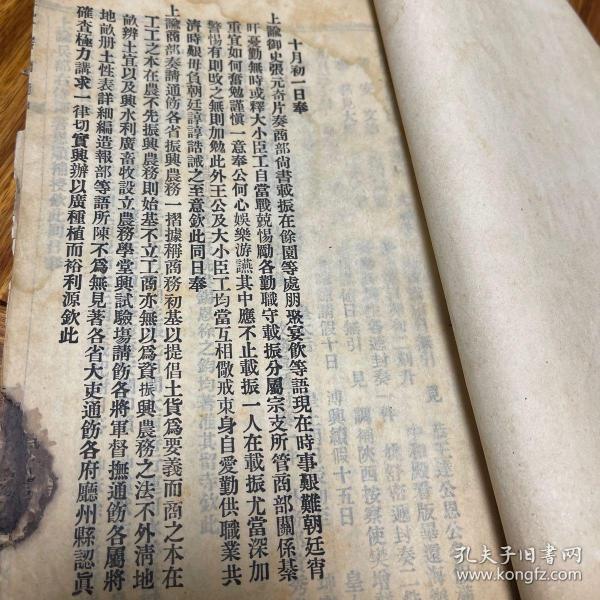 十月初一日奉
上諭御史張元奇片奏商部尙書載振在餘園等處朋聚宴飮等語現在時事艱難朝廷宵
旰憂勤無時或釋大小臣工自當戰兢惕勵各勤職守載振分屬宗支所管商部關係綦
重宜如何奮勉謹慎一意奉公何心娛樂游讌其中應不止載振一人在載振尤當深加
警惕有則改之無則加勉此外王公及大小臣工均當互相儆戒束身自愛勤供職業共
濟時艱毋負朝廷諄諄誥誡之至意欽此同日奉
上諭商部奏請通飭各省振興農務一摺據稱商務初基以提倡土貨爲要義而商之本在
工工之本在農不先振興農務則始基不立工商亦無以爲資振興農務之法不外淸地
畝辨土宜以及興水利廣畜牧設立農務學堂興試驗場請飭各將軍督撫通飭各屬將
地畝册土性表詳細編造報部等語所陳不爲無見著各省大吏通飭各府廳州縣認眞
確查極力講求一律切實興辦以廣種植而裕利源欽此
孔夫子旧书网
www.kongfz.com